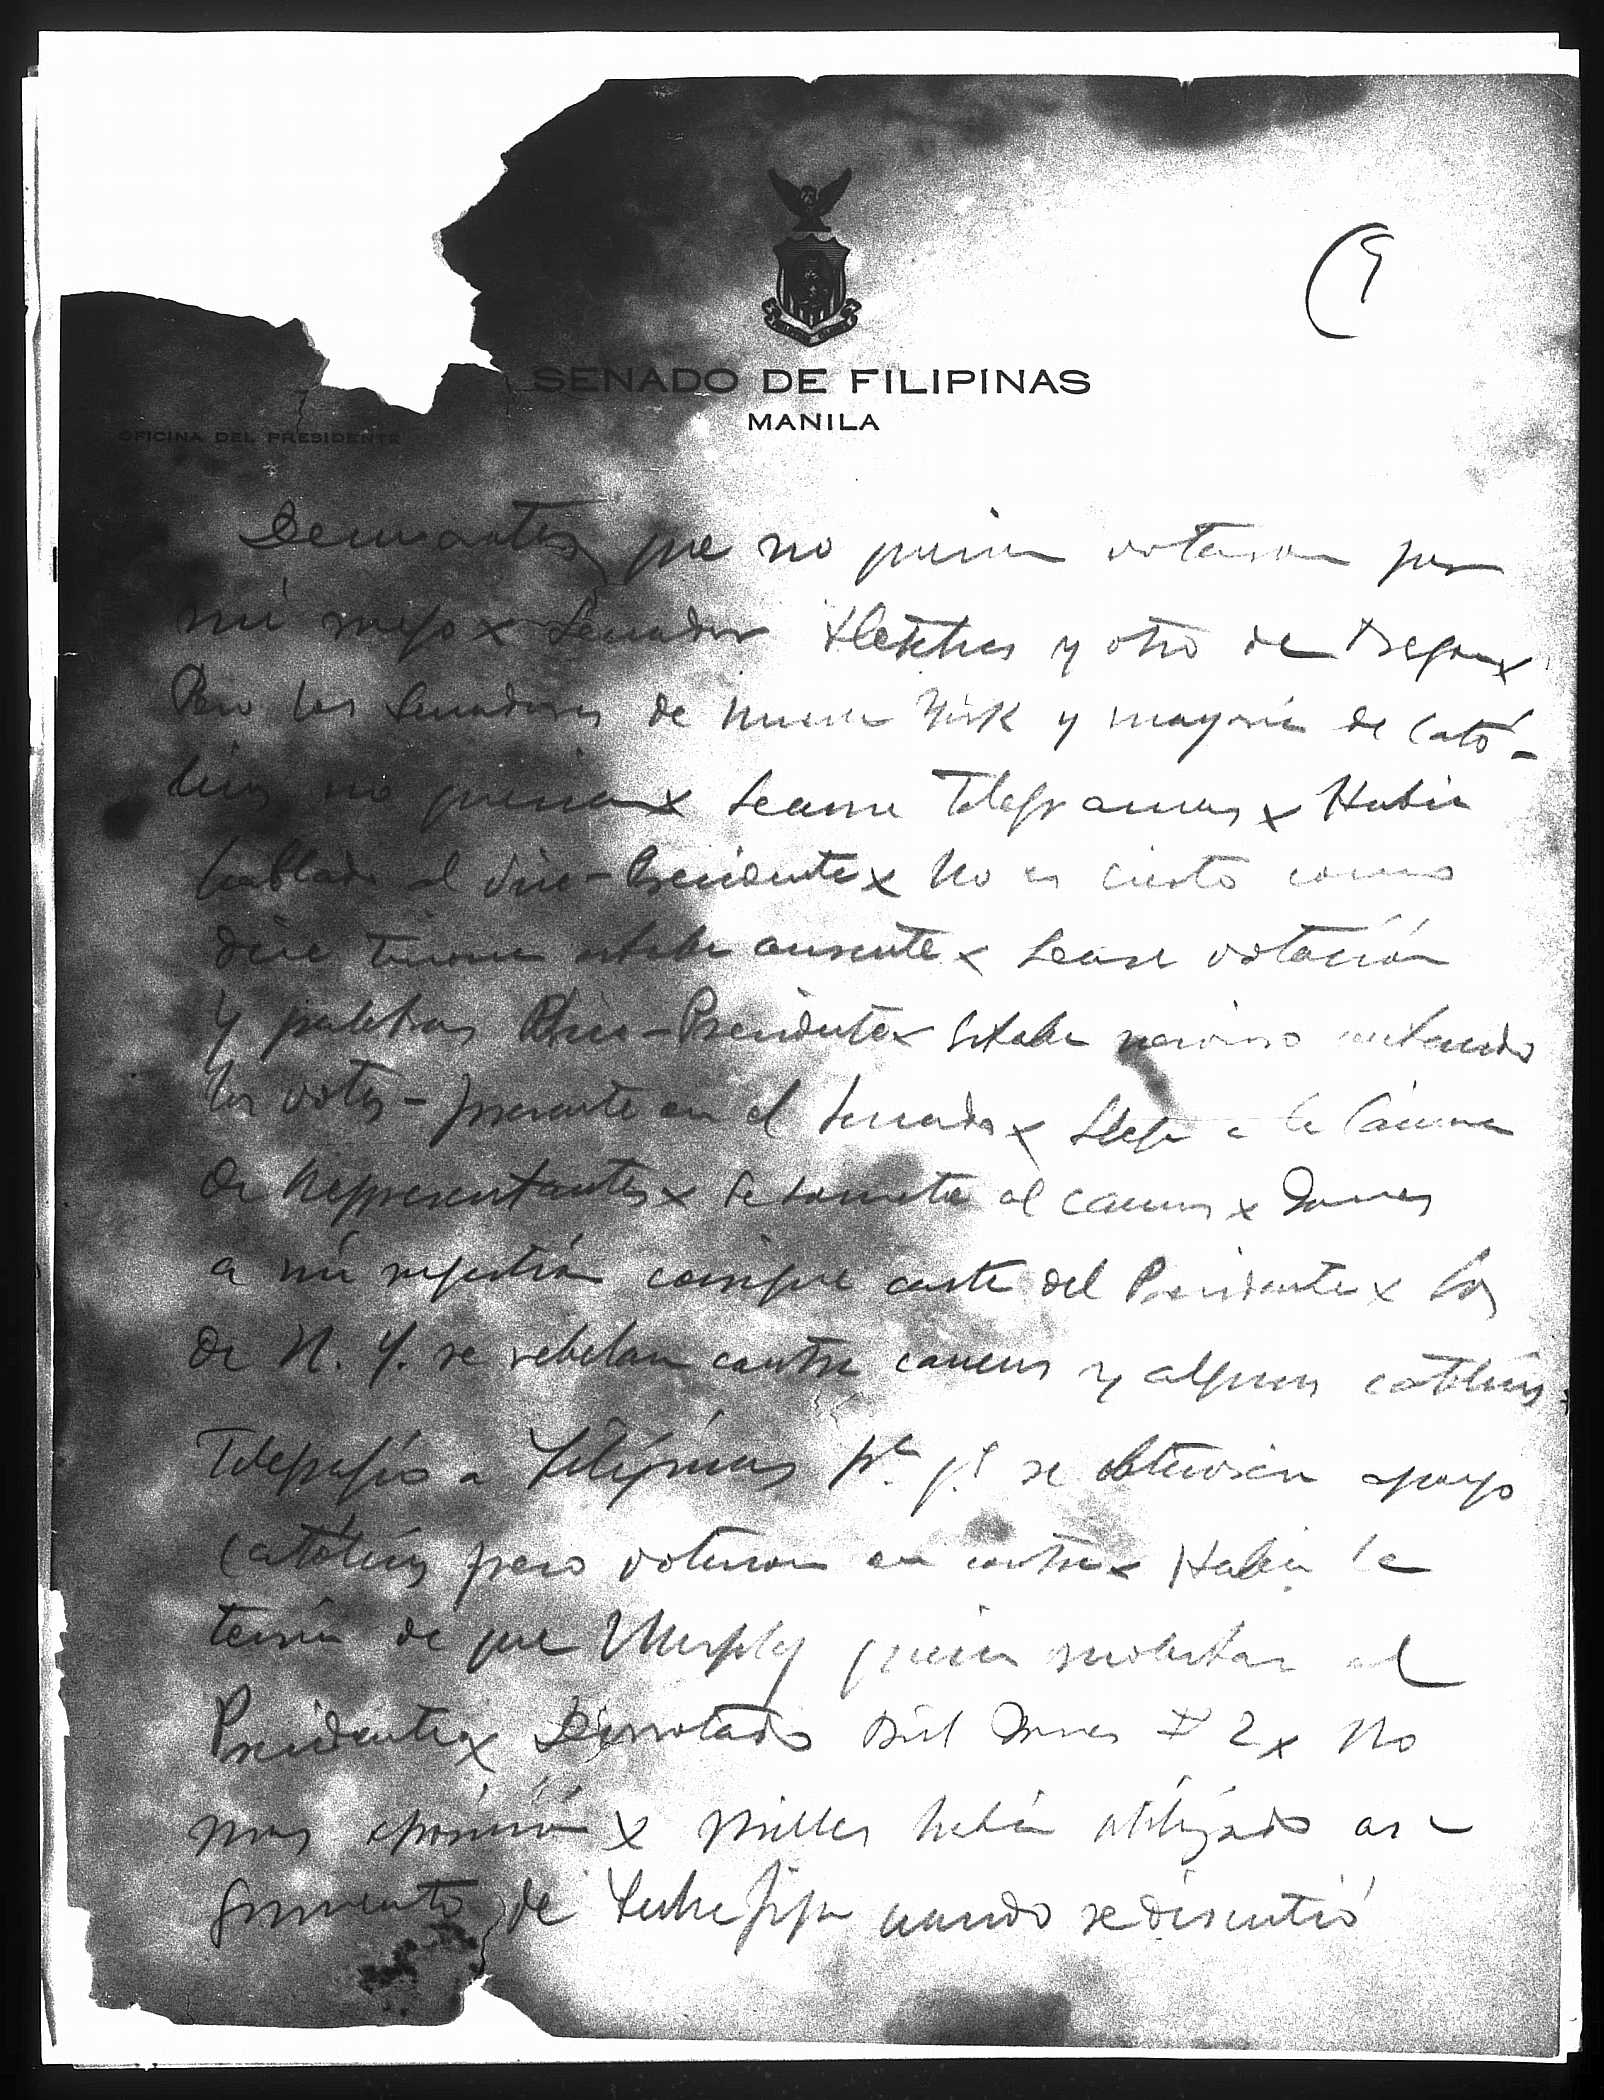 (9
SENADO DE FILIPINAS
MANILA
OFICINA DEL PRESIDENTE
que no votaron por
mi ruego x Senador y otro de Oregon x
Pero los Senadores de Nueva York y mayoría de Cató-
licos no querian x Lease Telegramas x Había
hablado al Vice-Presidente x No es cierto como
dice estaba ausente x Lease votación
y palabras Vice-Presidente x Estaba nervioso contando
los votos - presente en el Senado x Llega a la Cámara
de Representantes x Se somete al caucus x Jones
a mi sugestión consigue carta del Presidente x Los
de N. Y. se rebelan contra caucus y algunos católicos
Telegrafio a Filipinas pa. q. se obtuviera apoyo
Católicos pero votaron en contra x Había la
teoría de que Murphy quería molestar al
Presidente x Derrotado Bill Jones # 2 x No
mas oposición x Miller había utilizado ar-
gumento de cuando se discutió